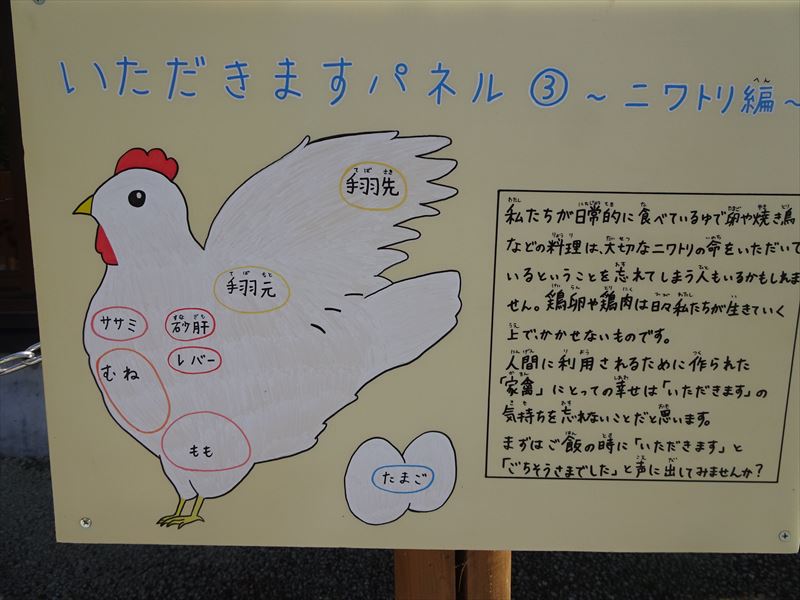 いただきますパネル ③ ～ニワトリ編～
手羽先
手羽元
ササミ
砂肝
レバー
むね
もも
たまご
私たちが日常的に食べているゆで卵や焼き鳥
などの料理は、大切なニワトリの命をいただいて
いるということを忘れてしまう人もいるかもしれま
せん。鶏卵や鶏肉は日々私たちが生きていく
上でかかせないものです。
人間に利用されるために作られた
「家禽」にとっての幸せは「いただきます」の
気持ちを忘れないことだと思います。
まずはご飯の時に「いただきます」と
「ごちそうさまでした」と声に出してみませんか？